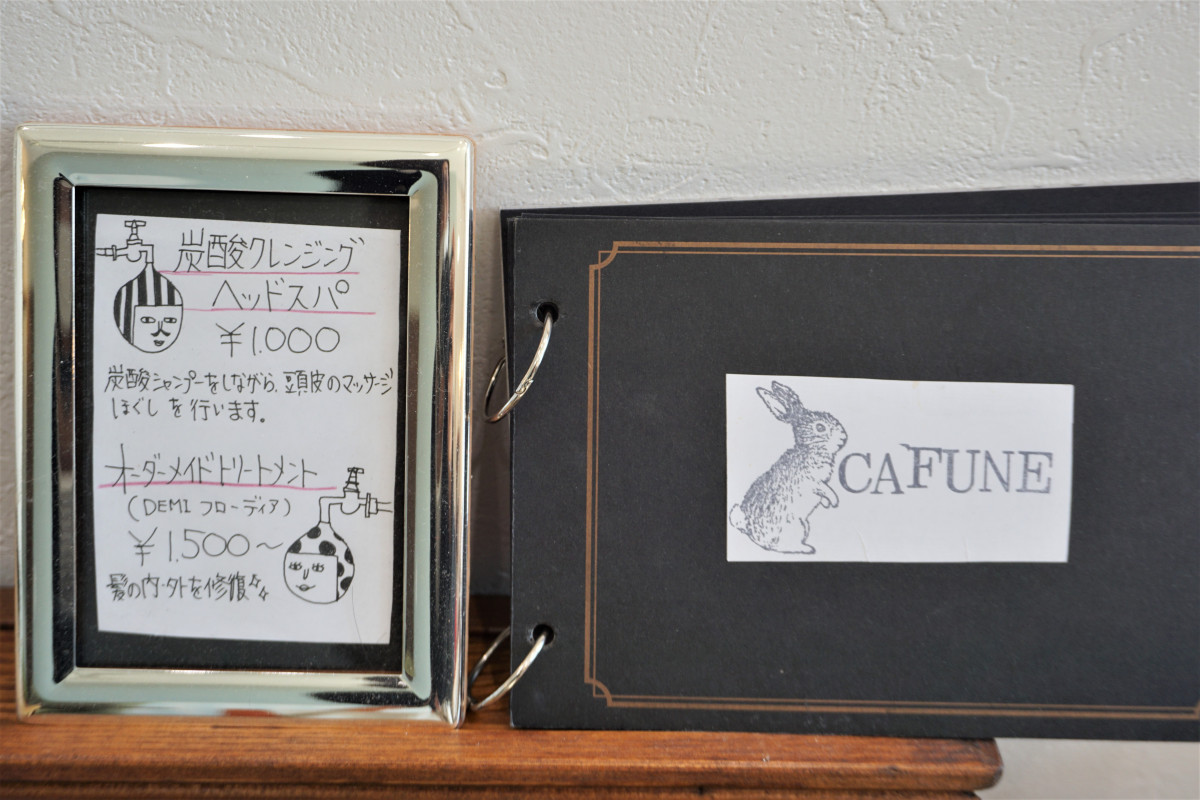 炭酸クレンジング
ヘッドスパ
¥1.000
炭酸シャンプーをしながら、頭皮のマッサージ
ほぐしを行います。
オーダーメイドトリートメント
(DEMI フローディア)
¥1.500〜
髪の内・外を修復
CAFUNE